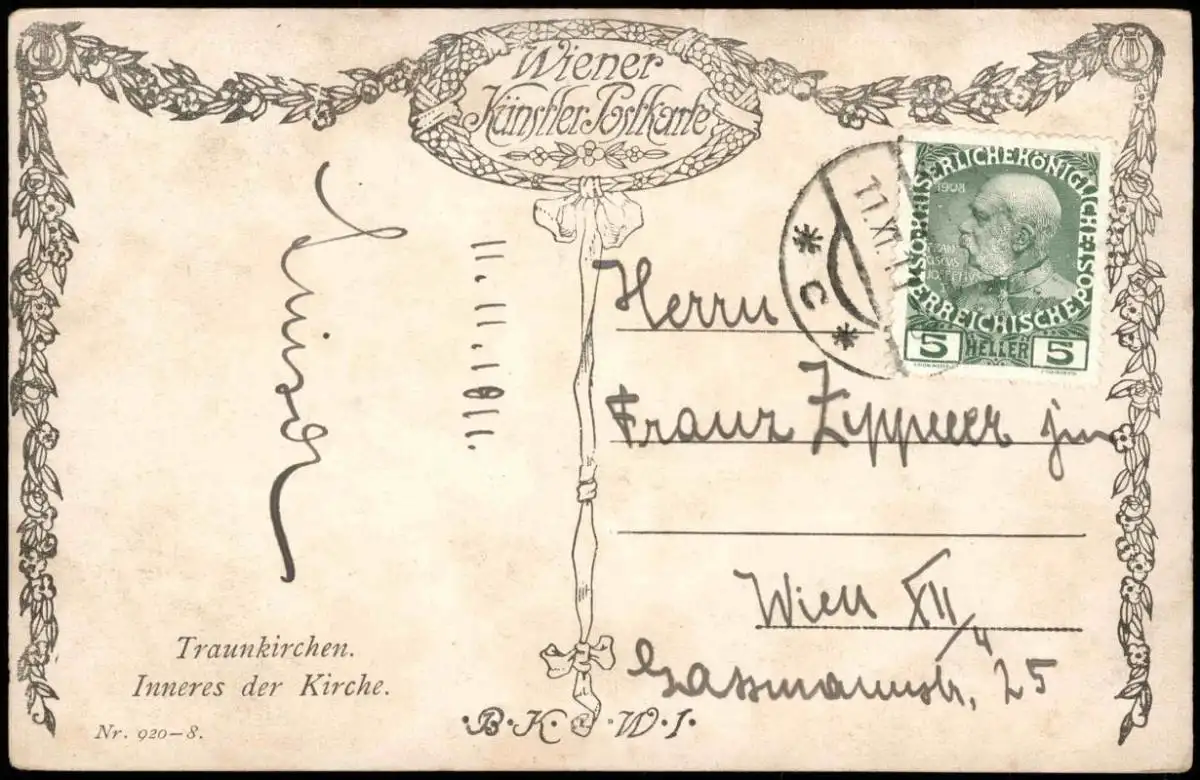 Wiener
Künstler Postkarte
11. 11. 1911.
Traunkirchen.
Inneres der Kirche.
Nr. 920–8.
·B·K· W·I·
* C *
11.XI.11
KAISERLICHE KÖNIGLICHE
ÖSTERREICHISCHE POST
1908
FRANCISCUS
JOSEPHUS
5 HELLER 5
Herrn
Franz Zippner jun
Wien XII/4
Gassmannstr. 25